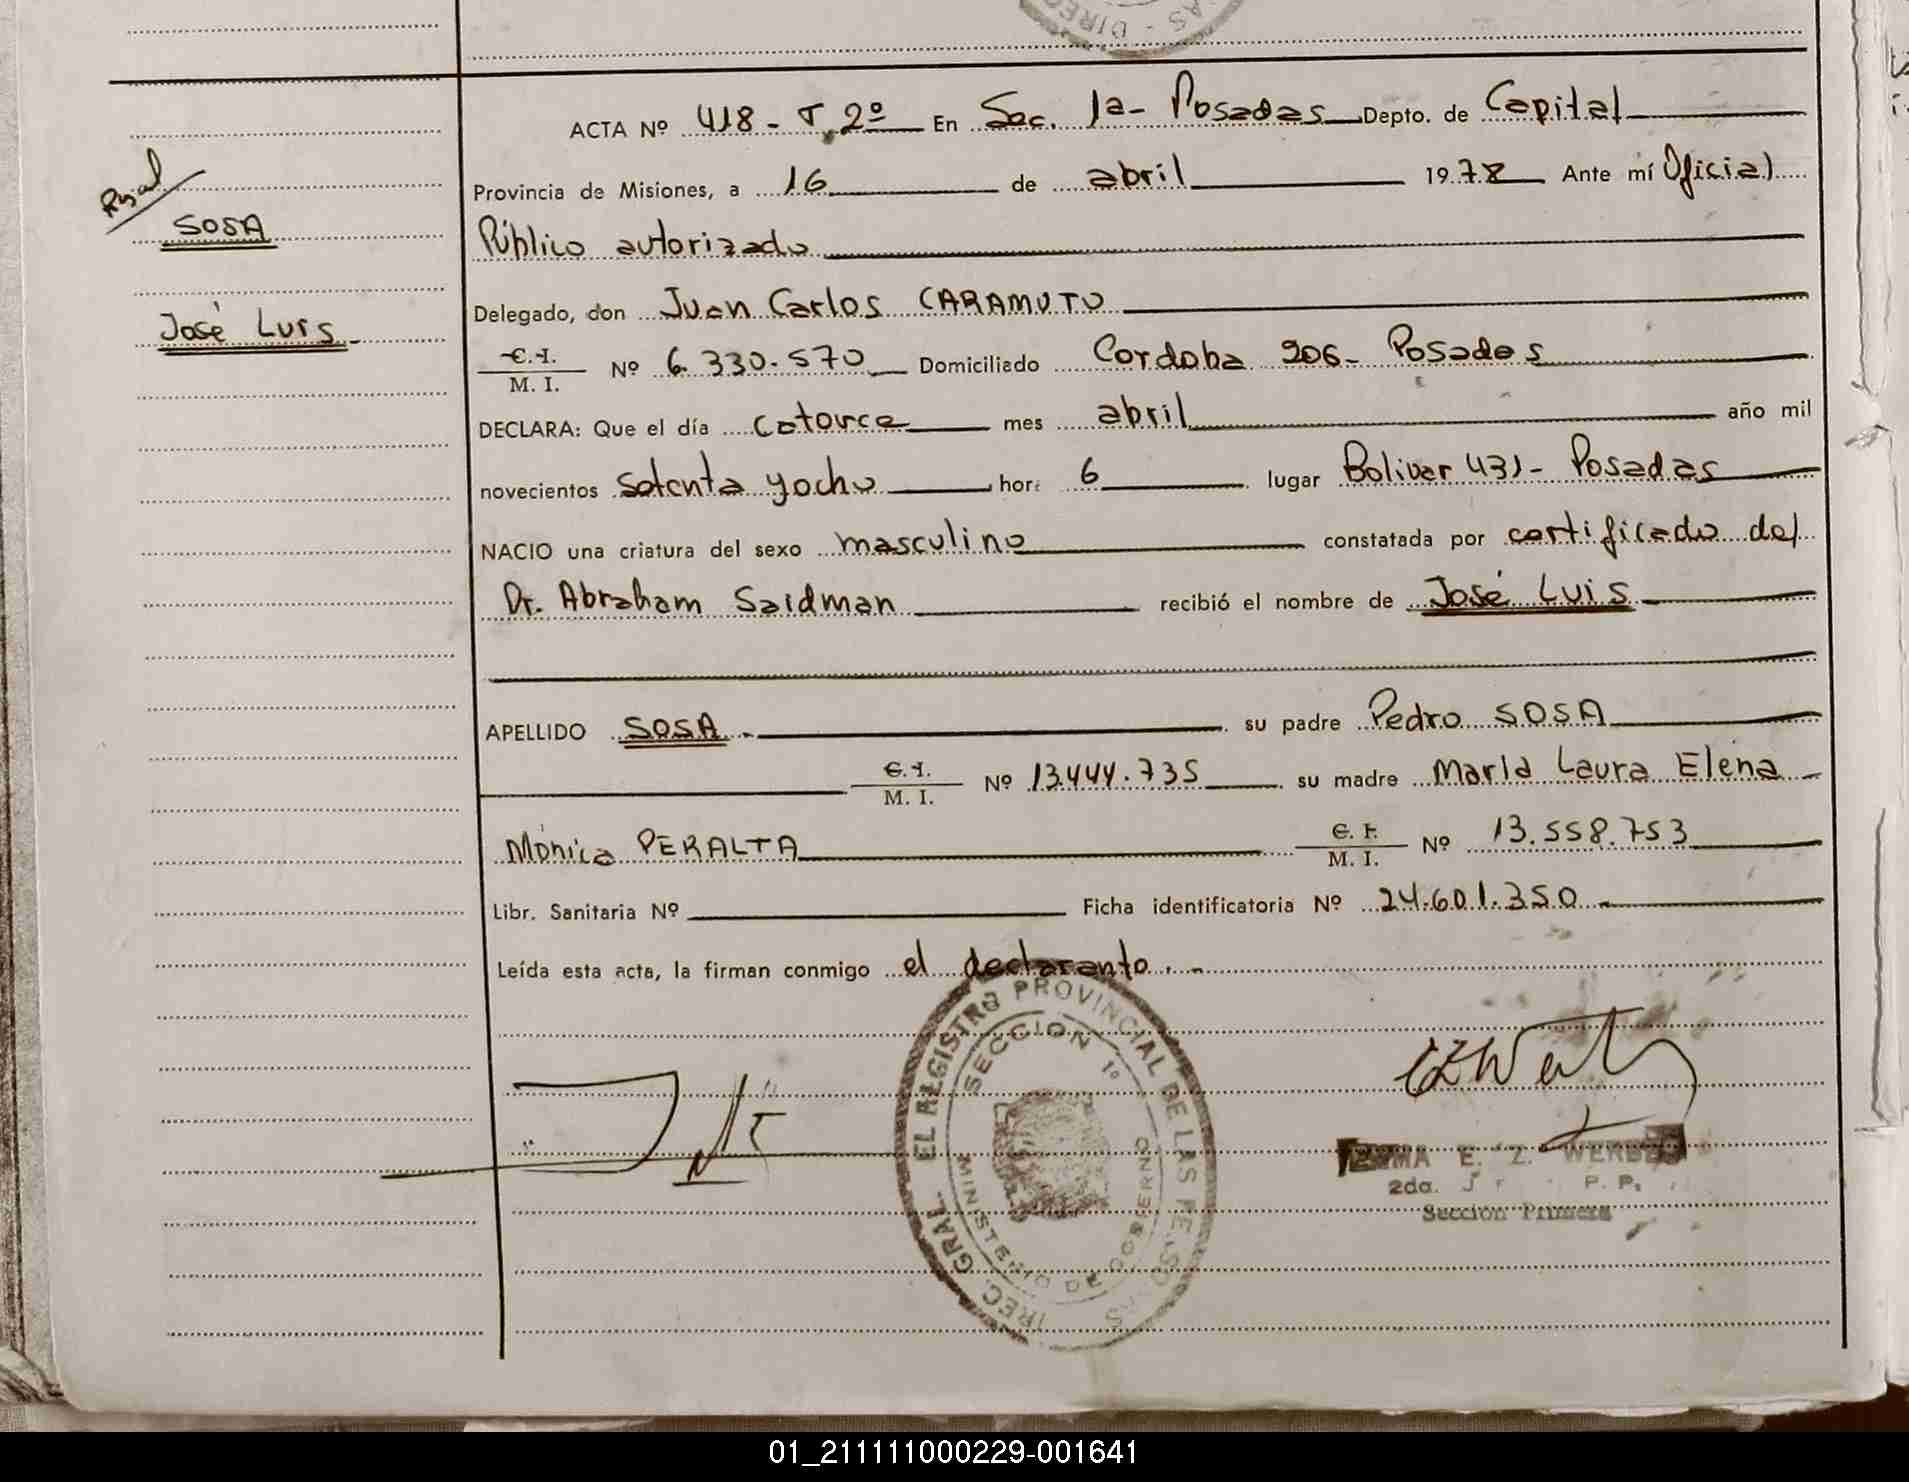 ACTA Nº 418 - T 2º En Sec. 1a - Posadas Depto. de Capital
Provincia de Misiones, a 16 de abril 1978 Ante mí Oficial
Público autorizado
Delegado, don Juan Carlos CARAMUTO
C. I.
M. I. Nº 6.330.570 Domiciliado Cordoba 906 - Posadas
DECLARA: Que el día catorce mes abril año mil
novecientos setenta y ocho hora 6 lugar Bolivar 431 - Posadas
NACIO una criatura del sexo masculino constatada por certificado del
Dr. Abraham Saidman recibió el nombre de José Luis
APELLIDO SOSA.- su padre Pedro SOSA
C. I.
M. I. Nº 13.444.735 su madre María Laura Elena
Mónica PERALTA C. I.
M. I. Nº 13.558.753
Libr. Sanitaria Nº Ficha identificatoria Nº 24.601.350
Leída esta acta, la firman conmigo el declarante.-
SOSA
José Luis.
GRAL. EL REGISTRO PROVINCIAL DE LAS PERSONAS
SECCION 1º
MINISTERIO DE GOBIERNO
E. Z.
2da. P. P.
Sección Primera
01_211111000229-001641